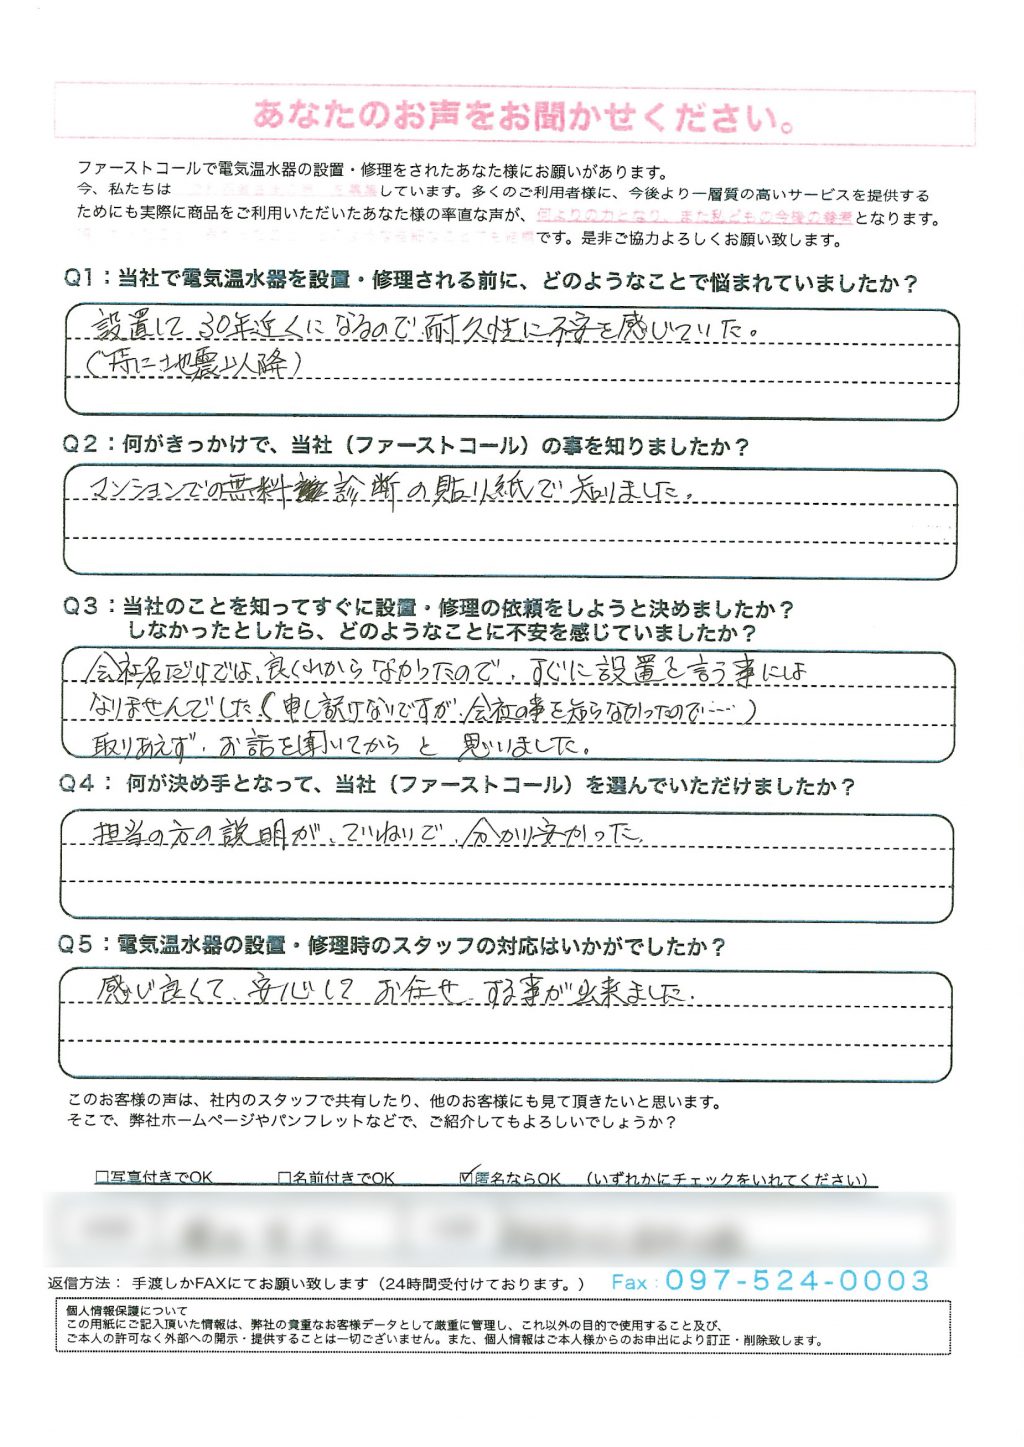 あなたのお声をお聞かせください。
ファーストコールで電気温水器の設置・修理をされたあなた様にお願いがあります。
今、私たちは しています。多くのご利用者様に、今後より一層質の高いサービスを提供する
ためにも実際に商品をご利用いただいたあなた様の率直な声が、何よりの力となり、また私どもの今後の参考となります。
です。是非ご協力よろしくお願い致します。
Q1：当社で電気温水器を設置・修理される前に、どのようなことで悩まれていましたか？
設置して30年近くになるので耐久性に不安を感じていた。
（特に地震以降）
Q2：何がきっかけで、当社（ファーストコール）の事を知りましたか？
マンションでの無料診断の貼り紙で知りました。
Q3：当社のことを知ってすぐに設置・修理の依頼をしようと決めましたか？
しなかったとしたら、どのようなことに不安を感じていましたか？
会社名だけでは、良くわからなかったので、すぐに設置を言う事には
なりませんでした（申し訳けないですが、会社の事を知らなかったので……）
取りあえず、お話を聞いてからと思いました。
Q4： 何が決め手となって、当社（ファーストコール）を選んでいただけましたか？
担当の方の説明が、ていねいで、分かり安かった。
Q5：電気温水器の設置・修理時のスタッフの対応はいかがでしたか？
感じ良くて、安心してお任せする事が出来ました。
このお客様の声は、社内のスタッフで共有したり、他のお客様にも見て頂きたいと思います。
そこで、弊社ホームページやパンフレットなどで、ご紹介してもよろしいでしょうか？
□写真付きでOK □名前付きでOK ☑匿名ならOK （いずれかにチェックをいれてください）
返信方法： 手渡しかFAXにてお願い致します（24時間受付けております。） Fax：097-524-0003
個人情報保護について
この用紙にご記入頂いた情報は、弊社の貴重なお客様データとして厳重に管理し、これ以外の目的で使用すること及び、
ご本人の許可なく外部への開示・提供することは一切ございません。また、個人情報はご本人様からのお申出により訂正・削除致します。